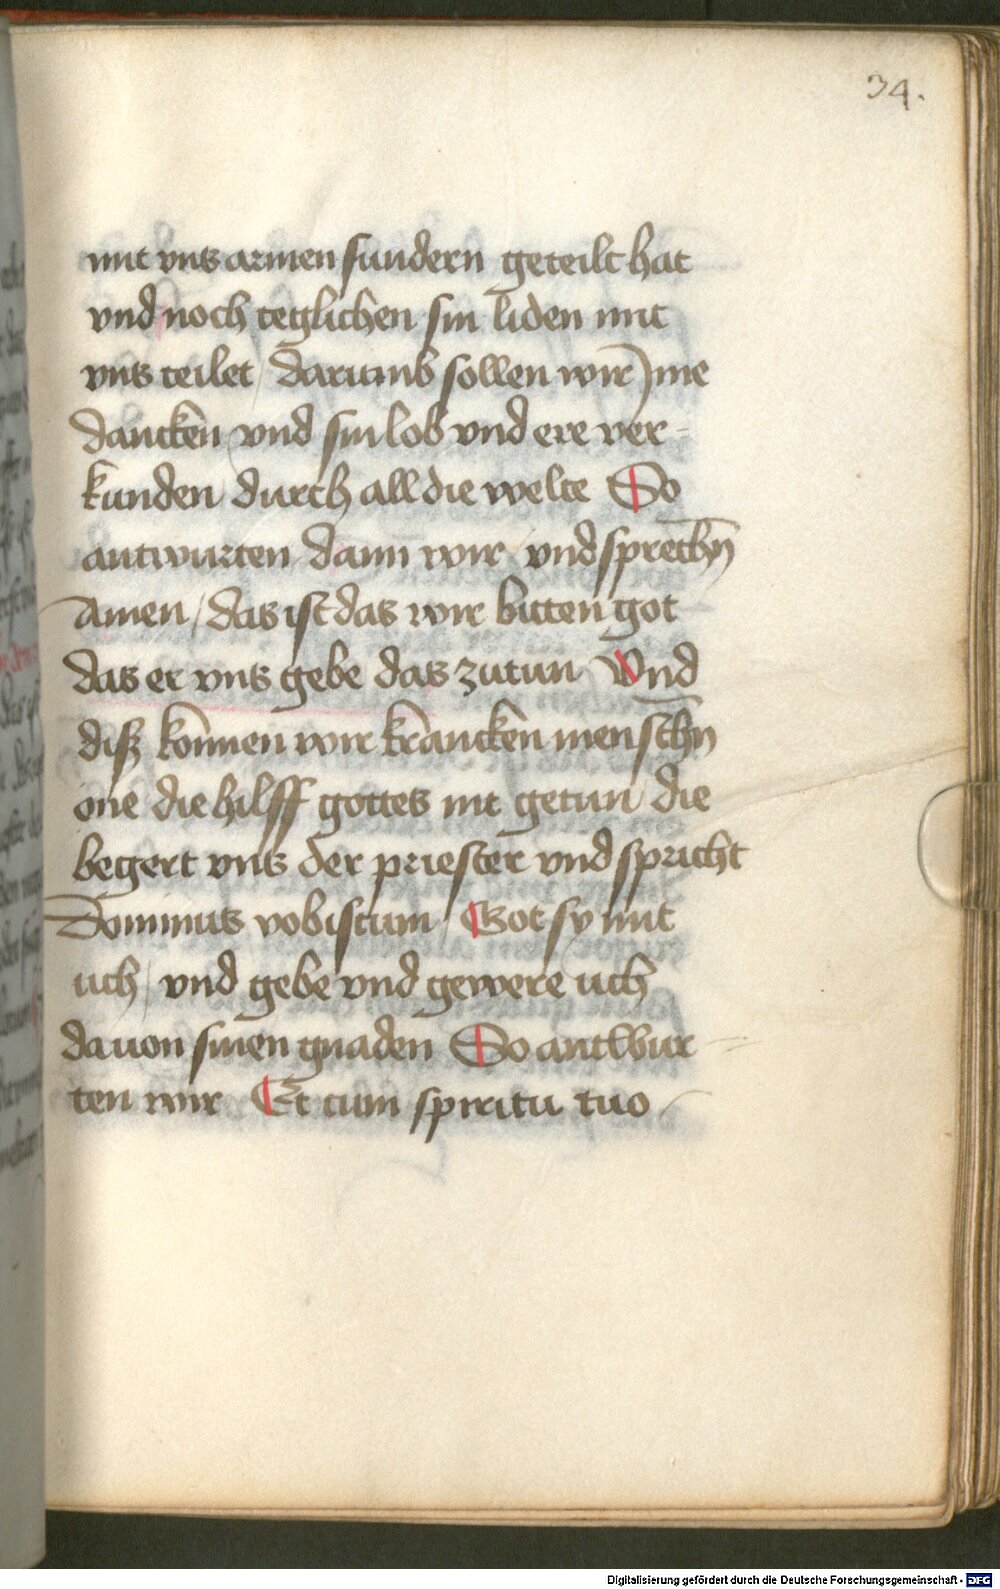 34.
mit vns armen sundern geteilt hat
vnd noch teglichen sin liden mit
vns teilet / darumb sollen wir Jme
dancken vnd sin lob vnd ere ver-
kunden durch all die welte So
antwurten dann wir vnd sprechn̄
Amen / das ist das wir bitten got
das er vns gebe das zutun Vnd
disz kōnnen wir krancken menschn̄
one die hilff gottes nit getun die
begert vns der priester vnd spricht
Dominus vobiscum / Got sy mit
uch / vnd gebe vnd gewere uch
dauon sinen gnaden So antwur-
ten wir Et cum spiritu tuo /
Digitalisierung gefördert durch die Deutsche Forschungsgemeinschaft - DFG